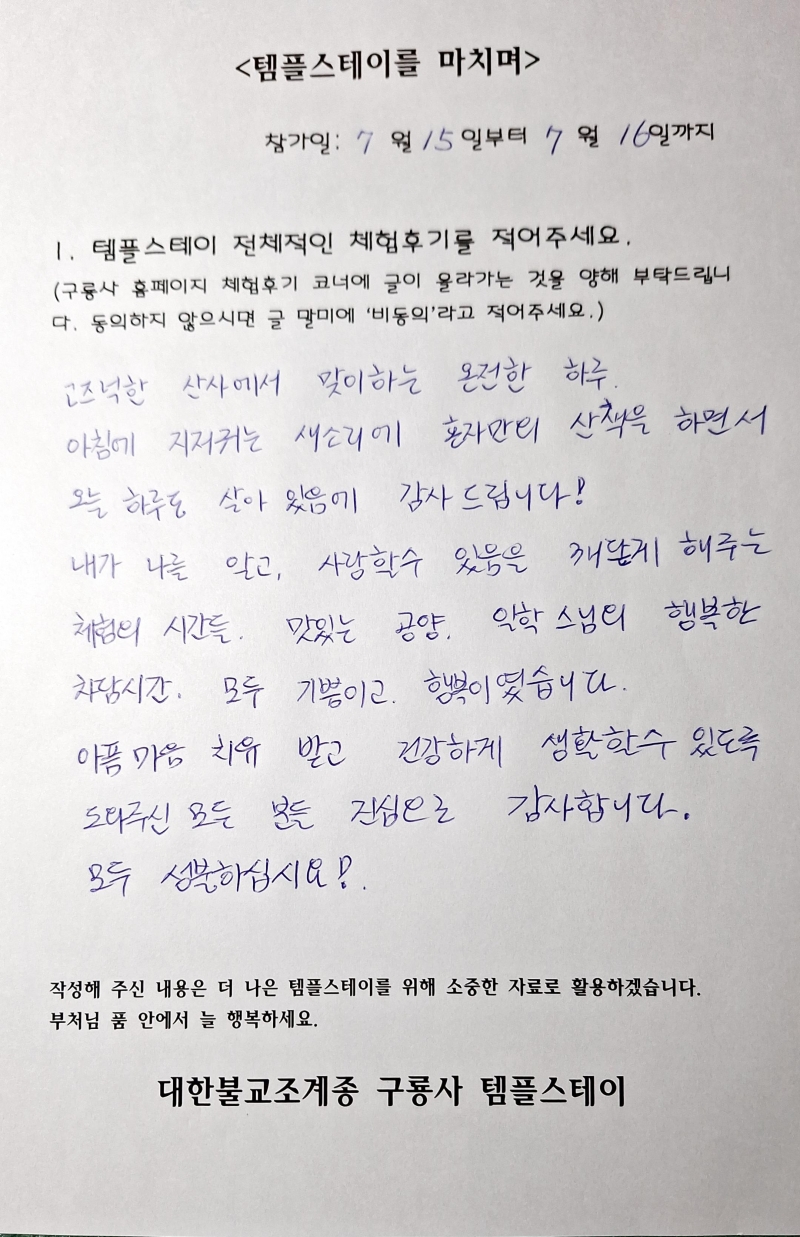 <템플스테이를 마치며>
참가일: 7 월 15 일부터 7 월 16일까지
1. 템플스테이 전체적인 체험후기를 적어주세요.
(구룡사 홈페이지 체험후기 코너에 글이 올라가는 것을 양해 부탁드립니
다. 동의하지 않으시면 글 말미에 '비동의'라고 적어주세요.)
고즈넉한 산사에서 맞이하는 온전한 하루.
아침에 지저귀는 새소리에 혼자만의 산책을 하면서
오늘 하루도 살아 있음에 감사 드립니다!
내가 나를 알고, 사랑할수 있음을 깨닫게 해주는
체험의 시간들. 맛있는 공양. 스님의 행복한
차담시간. 모두 기쁨이고. 행복이였습니다.
아픔 마음 치유 받고 건강하게 생활할수 있도록
도와주신 모든 분들 진심으로 감사합니다.
모두 성불하십시요!.
작성해 주신 내용은 더 나은 템플스테이를 위해 소중한 자료로 활용하겠습니다.
부처님 품 안에서 늘 행복하세요.
대한불교조계종 구룡사 템플스테이